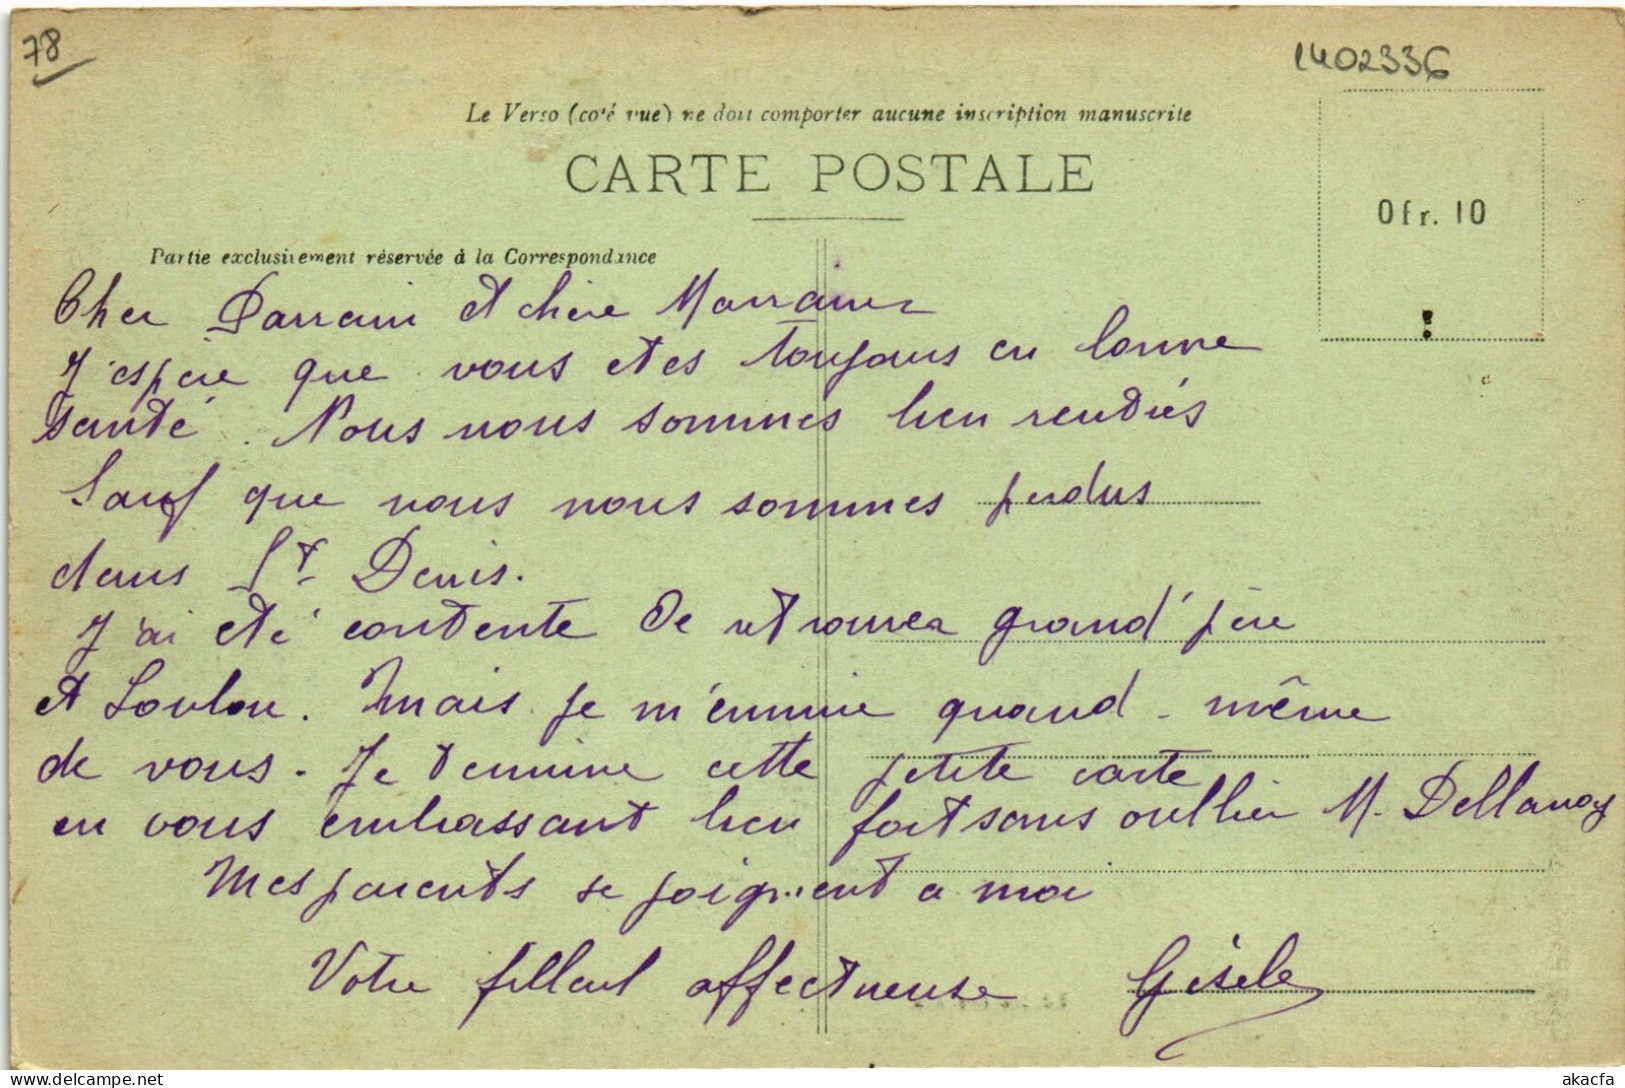 78
1402336
Le Verso (coté vue) ne doit comporter aucune inscription manuscrite
CARTE POSTALE
0 fr. 10
Partie exclusivement réservée à la Correspondance
Cher Parrain et chère Marraine
J'espère que vous etes toujours en bonne
santé. Nous nous sommes bien rentrés
Sauf que nous nous sommes perdus
dans St Denis.
J'ai eté contente de retrouver grand'père
et Loulou. Mais je m'ennuie quand-même
de vous. Je termine cette petite carte
en vous embrassant bien fort sans oublier M. Dellanoy
Mes parents se joignent a moi
Votre filleul affectueuse Gisèle
akacfa